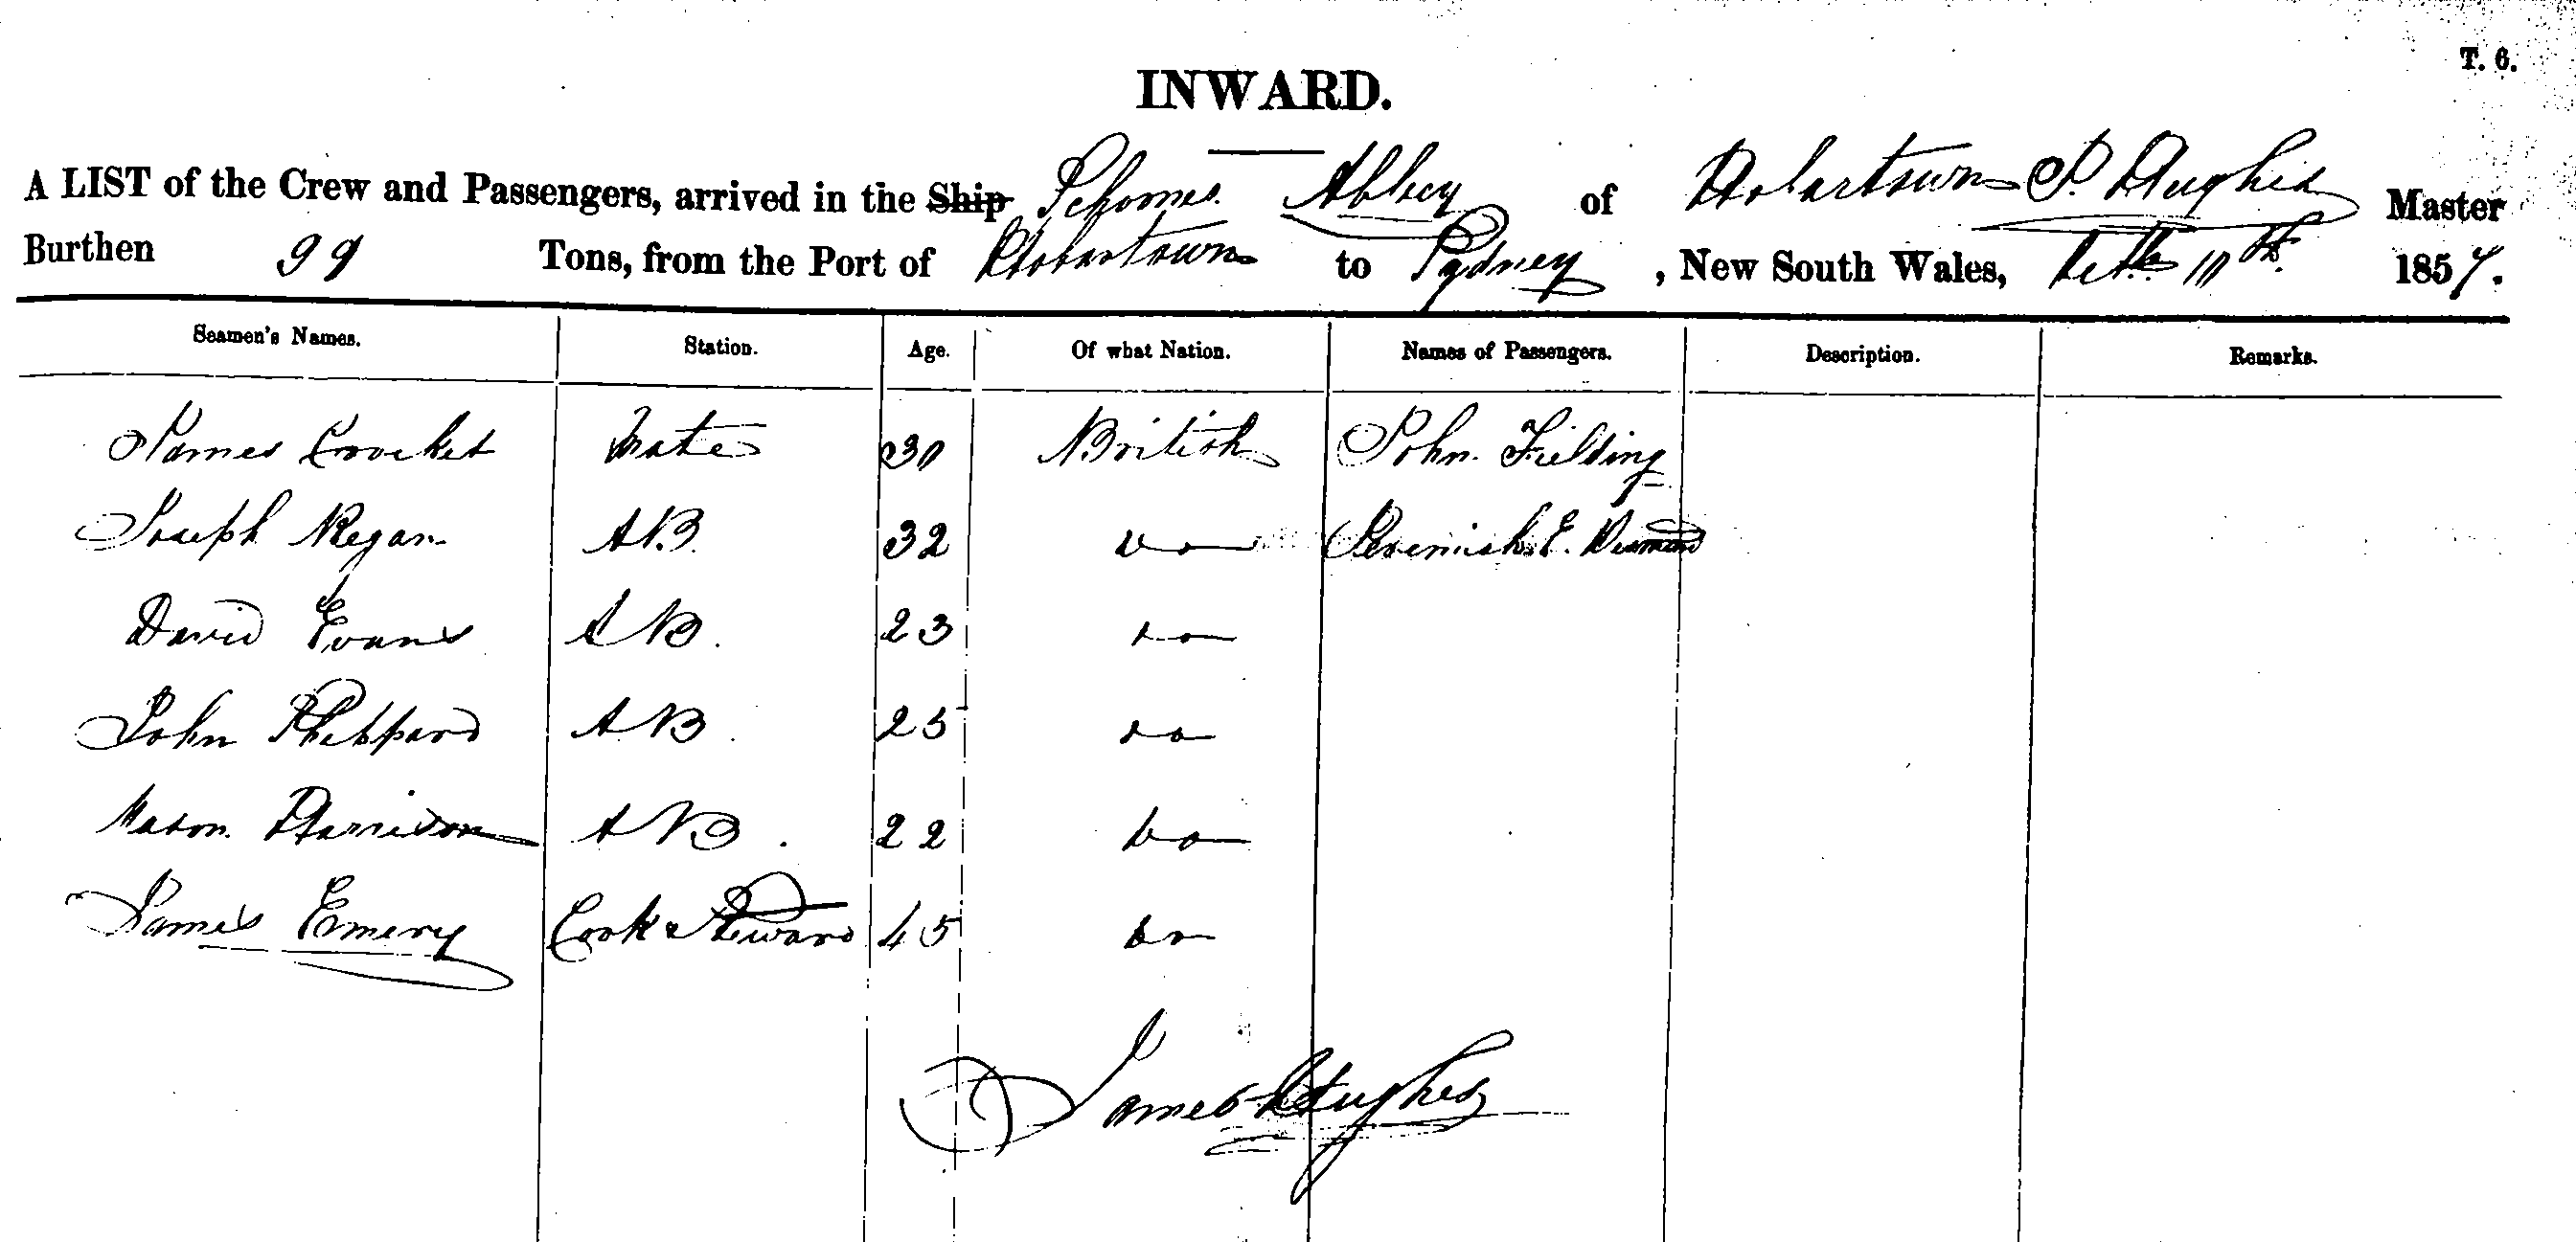 T. 6.
INWARD.
A LIST of the Crew and Passengers, arrived in the Ship Schomer Abbey of Hobartown J. Hughes Master
Burthen 99 Tons, from the Port of Hobartown to Sydney, New South Wales, 10th 1857.
Seamen's Names. Station. Age. Of what Nation. Names of Passengers. Description. Remarks.
James Crocket Mate 30 British John Fielding
Joseph Regan AB. 32 Do Jeremiah E.
David Evans AB. 23 Do
John Sheppard AB. 25 Do
Mason Harrison AB. 22 Do
James Emery Cook & Steward 45 Do
James Hughes